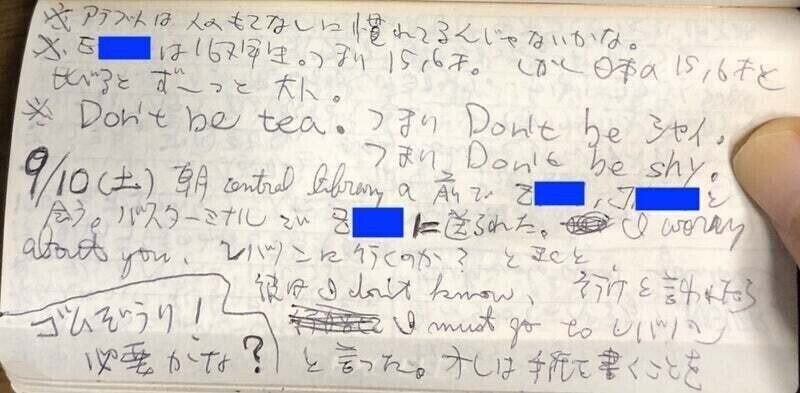 ※ アラブ人は人のもてなしに慣れてるんじゃないかな。
※. E は1年生。つまり15,6才。しかし日本の15,6才と
比べると ず〜っと 大人。
※ Don't be tea。つまり Don't be シャイ。
つまり Don't be shy。
9/10 (土) 朝 central library の前で Z 、J と
会う。バスターミナルで Z に送られた。 I worry
about you, レバノンに行くのか? と ると
彼は I don't know, と言われたら
I must go to レバノン
と言った。オレは手紙を書くことを
ゴムぞうり!
必要かな?